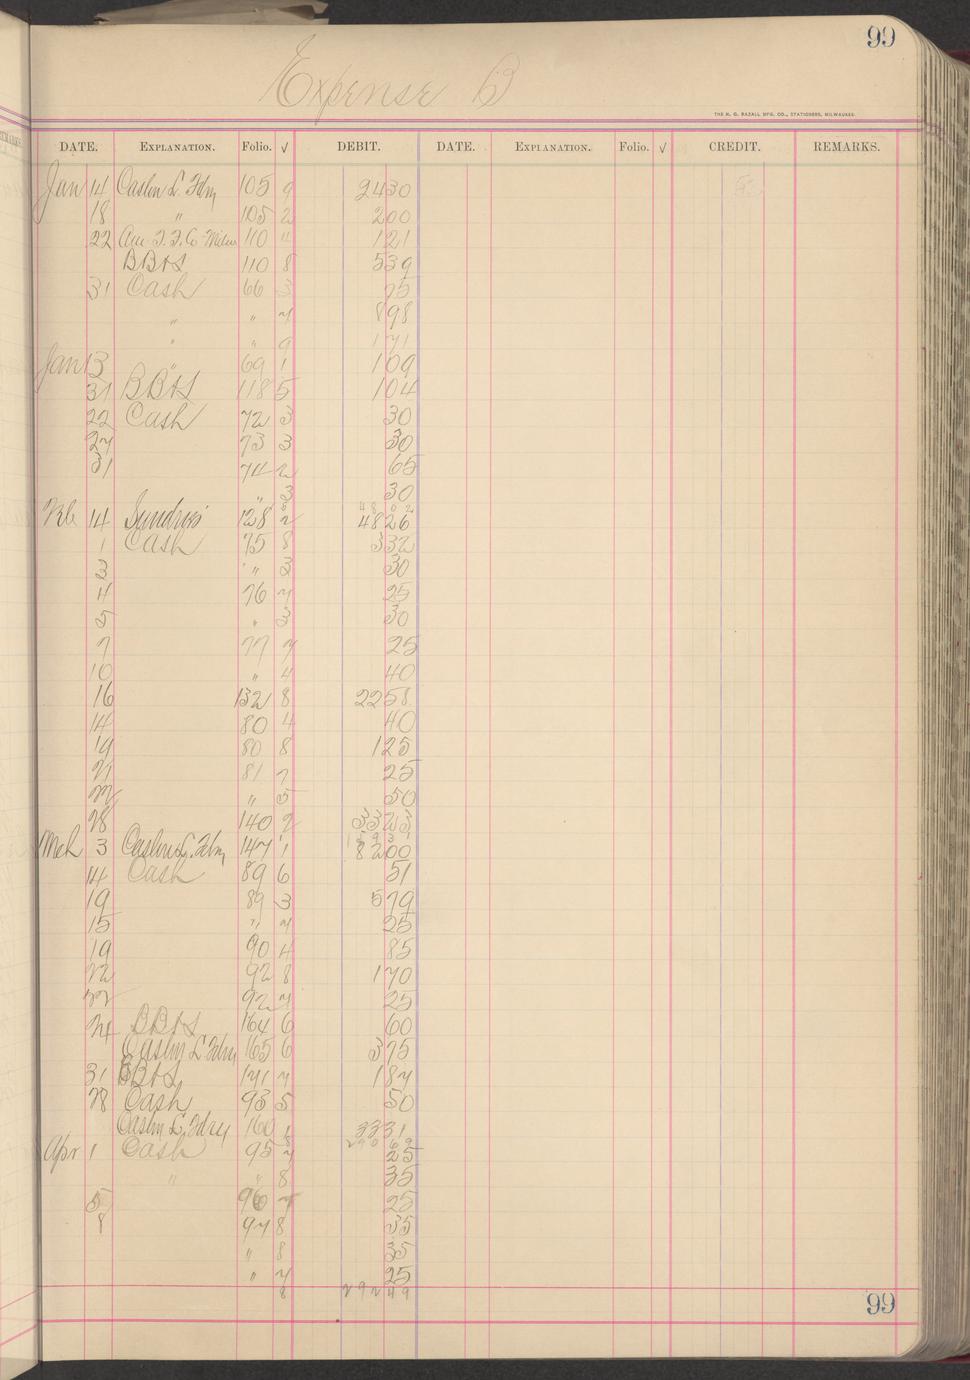 99
Expense B
THE H. G. RAZALL MFG. CO., STATIONERS, MILWAUKEE.
DATE. EXPLANATION. Folio. √ DEBIT. DATE. EXPLANATION. Folio. √ CREDIT. REMARKS.
Jan 14 Caslin L. Fdry 105 9 2430
18 " 105 2 200
22 110 " 121
BB&S 110 8 539
31 Cash 66 3 75
" " 7 898
" " 9 171
Jan 13 " 69 1 109
31 BB&S 118 5 104
22 Cash 72 3 30
27 73 3 30
31 74 2 65
" 3 30
Feb 14 Sundries 128 2 4826
1 Cash 75 8 332
3 " 3 30
4 76 7 25
5 " 3 30
7 77 7 25
10 " 4 40
16 132 8 2258
14 80 4 40
19 80 8 125
21 81 7 25
22 " 5 50
28 140 2 3323
Mch 3 Caslin L. Fdry 147 1 8200
14 Cash 89 6 51
19 89 3 579
15 " 7 25
19 90 4 85
22 92 8 170
22 92 7 25
24 BB&S 164 6 60
Caslin L Fdry 165 6 375
31 BB&S 171 7 187
28 Cash 93 5 50
Caslin L. Fdry 160 1 3331
Apr 1 Cash 95 7 25
" " 8 35
5 96 7 25
8 97 8 35
" 8 35
" 7 25
8 29249
99